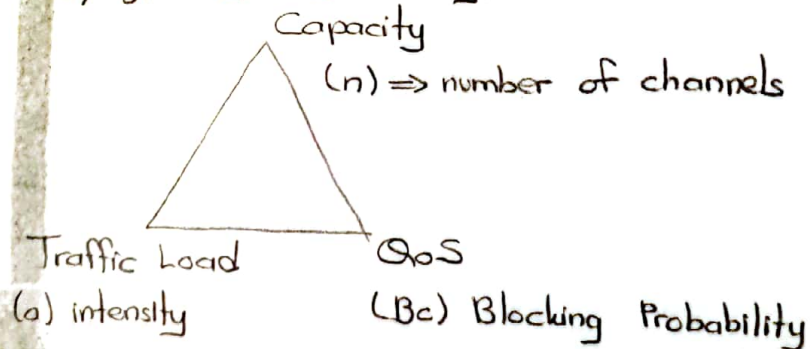 Capacity
(n) ⇒ number of channels
Traffic Load QoS
(a) intensity (Bc) Blocking Probability